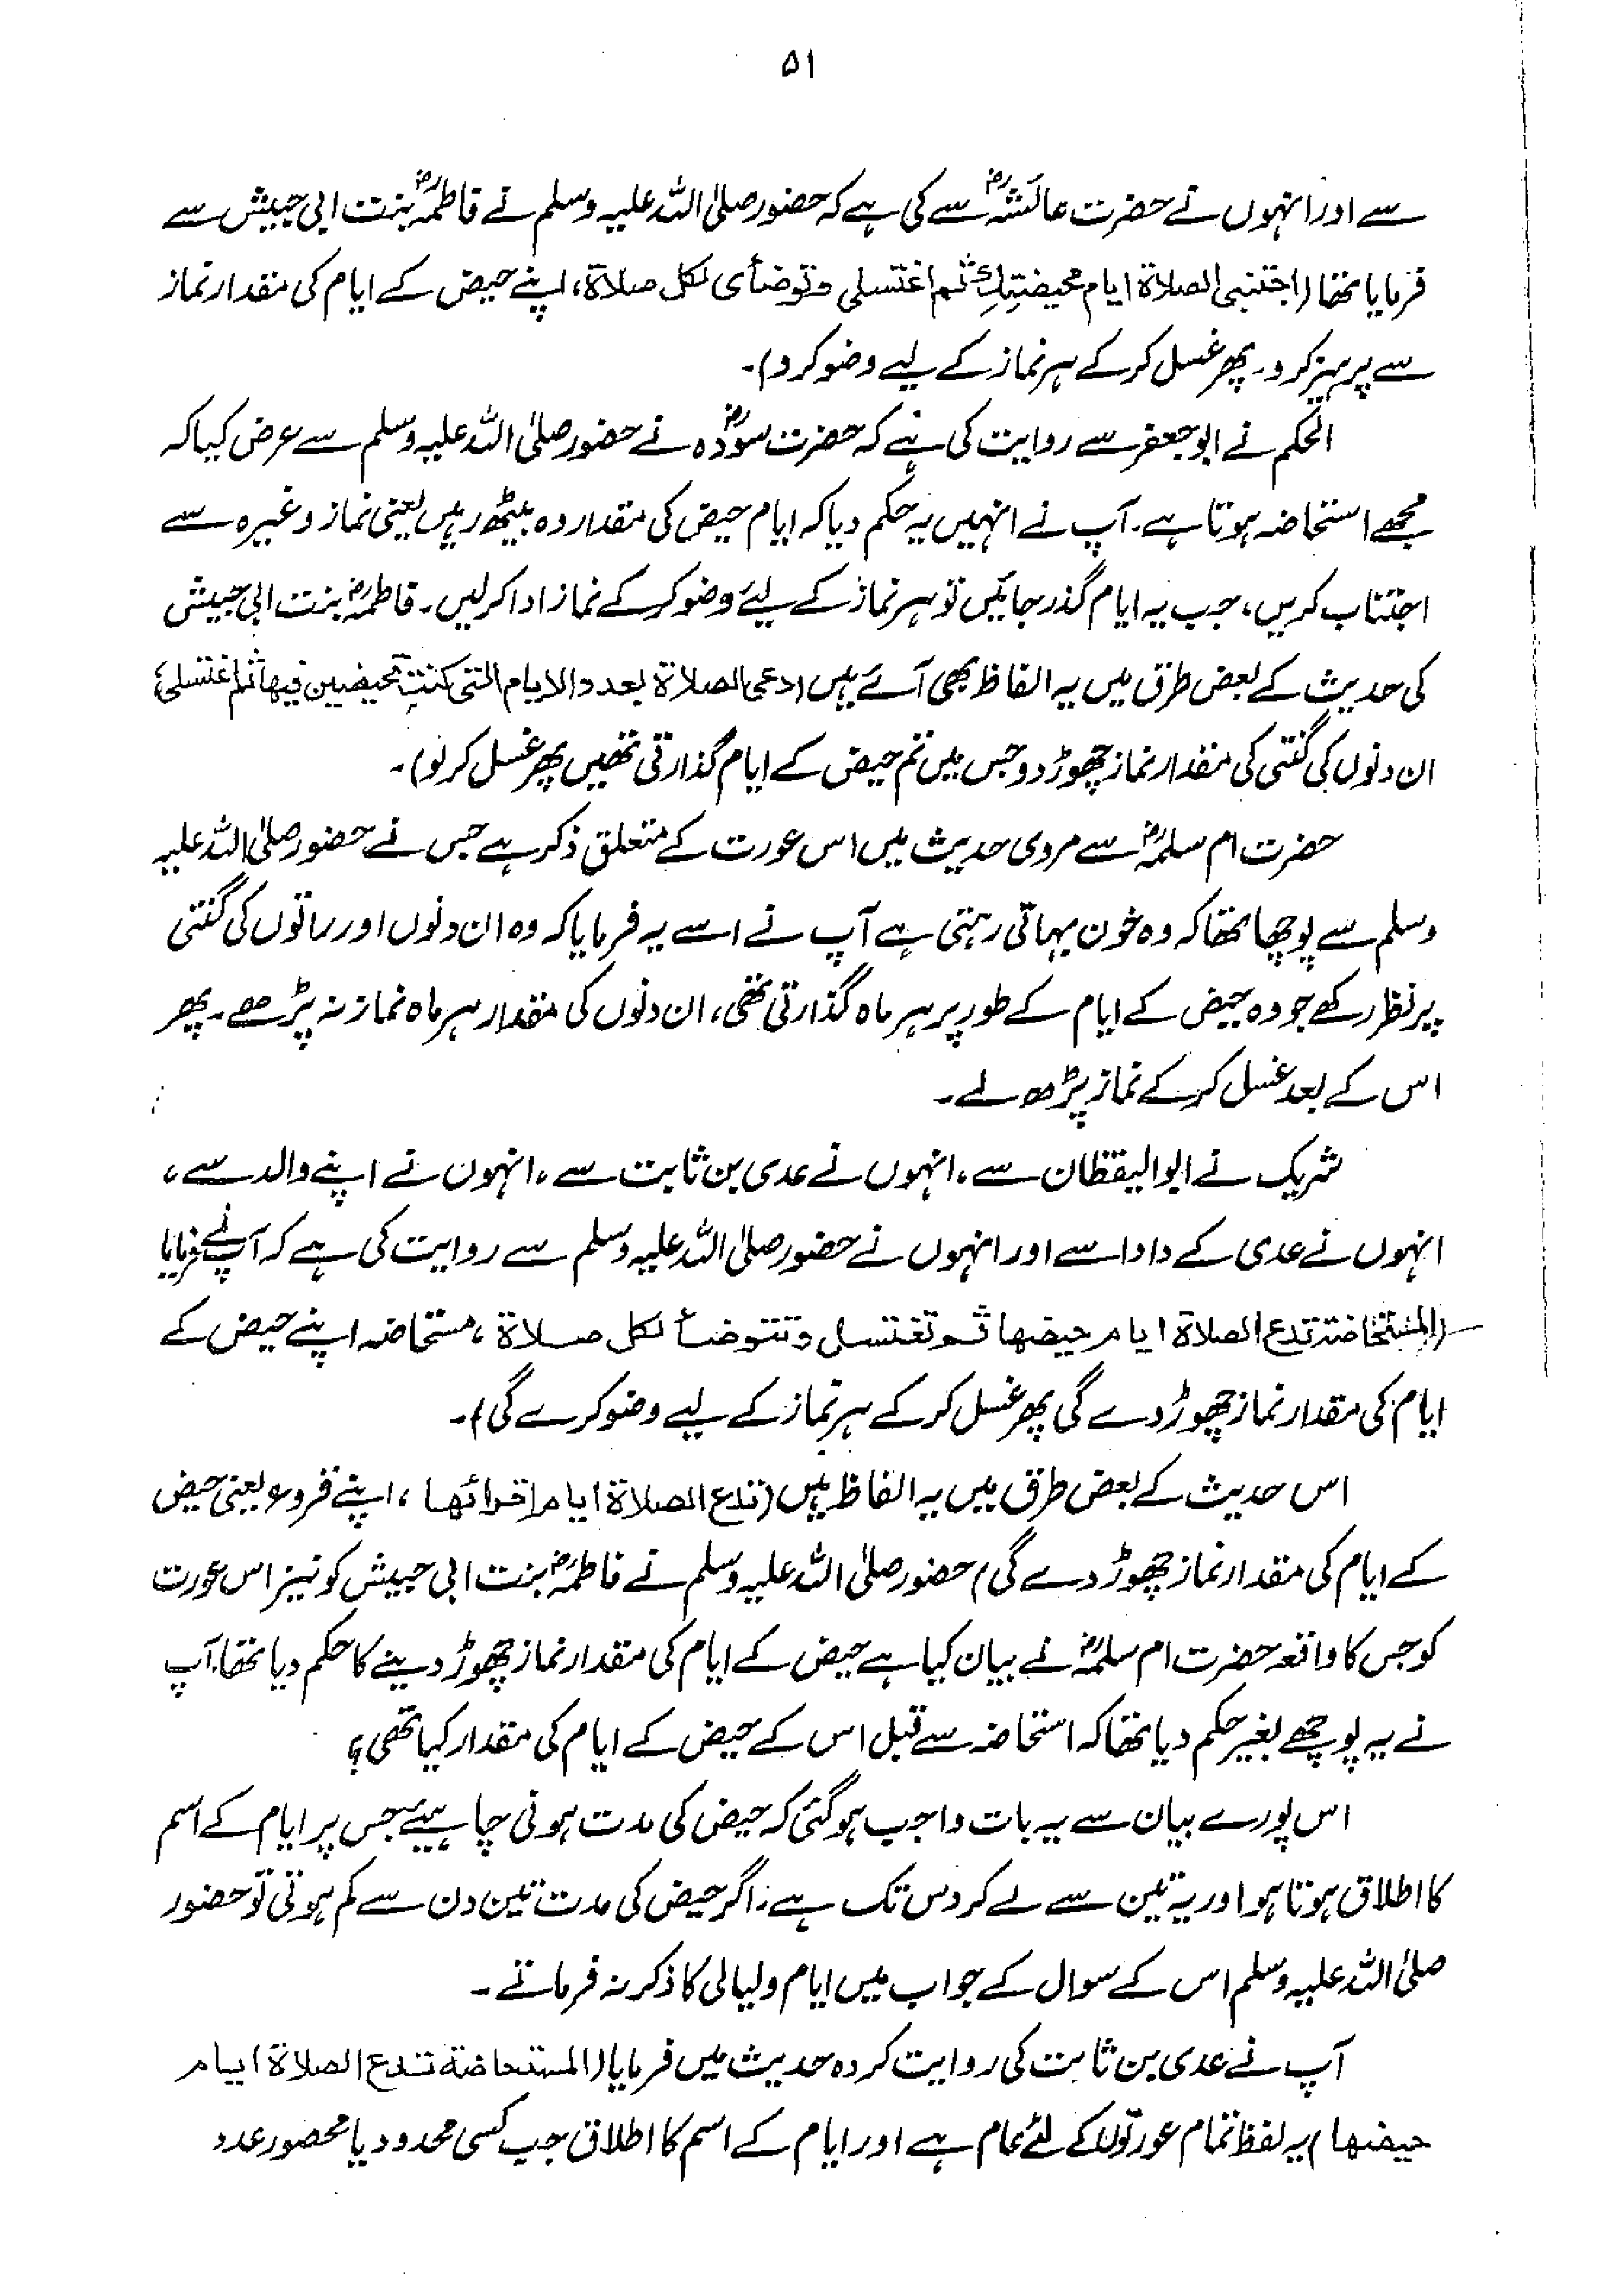 ۵۱
سے اور انہوں نے حضرت عائشہؓ سے کی ہے کہ حضور صلی اللہ علیہ وسلم نے فاطمہؓ بنت ابی حبیش سے
فرمایا تھا (اجتنبی الصلاۃ ایام محیضتِكِ ثم اغتسلی وتوضأی لکل صلاۃ، اپنے حیض کے ایام کی مقدار نماز
سے پرہیز کرو۔ پھر غسل کر کے ہر نماز کے لیے وضو کرو)۔
الحکم نے ابو جعفر سے روایت کی ہے کہ حضرت سودہؓ نے حضور صلی اللہ علیہ وسلم سے عرض کیا کہ
مجھے استحاضہ ہوتا ہے۔ آپ نے انہیں یہ حکم دیا کہ ایام حیض کی مقدار وہ بیٹھ رہیں یعنی نماز وغیرہ سے
اجتناب کریں، جب یہ ایام گذر جائیں تو ہر نماز کے لیے وضو کر کے نماز ادا کر لیں۔ فاطمہؓ بنت ابی حبیش
کی حدیث کے بعض طرق میں یہ الفاظ بھی آئے ہیں (دعی الصلاۃ بعدد الایام التی کنتِ تحیضین فیھا ثم اغتسلی،
ان دنوں کی گنتی کی مقدار نماز چھوڑ دو جس میں تم حیض کے ایام گذارتی تھیں پھر غسل کر لو)۔
حضرت ام سلمہؓ سے مروی حدیث میں اس عورت کے متعلق ذکر ہے جس نے حضور صلی اللہ علیہ
وسلم سے پوچھا تھا کہ وہ خون بہاتی رہتی ہے آپ نے اسے یہ فرمایا کہ وہ ان دنوں اور راتوں کی گنتی
پر نظر رکھے جو وہ حیض کے ایام کے طور پر ہر ماہ گذارتی تھی، ان دنوں کی مقدار ہر ماہ نماز نہ پڑھے۔ پھر
اس کے بعد غسل کر کے نماز پڑھ لے۔
شریک نے ابوالیقظان سے، انہوں نے عدی بن ثابت سے، انہوں نے اپنے والد سے،
انہوں نے عدی کے دادا سے اور انہوں نے حضور صلی اللہ علیہ وسلم سے روایت کی ہے کہ آپ نے فرمایا
(المستحاضۃ تدع الصلاۃ ایام حیضھا ثم تغتسل وتتوضأ لکل صلاۃ، مستحاضہ اپنے حیض کے
ایام کی مقدار نماز چھوڑ دے گی پھر غسل کر کے ہر نماز کے لیے وضو کرے گی)۔
اس حدیث کے بعض طرق میں یہ الفاظ ہیں (تدع الصلاۃ ایام اقرائھا، اپنے قروء یعنی حیض
کے ایام کی مقدار نماز چھوڑ دے گی) حضور صلی اللہ علیہ وسلم نے فاطمہؓ بنت ابی حبیش کو نیز اس عورت
کو جس کا واقعہ حضرت ام سلمہؓ نے بیان کیا ہے حیض کے ایام کی مقدار نماز چھوڑ دینے کا حکم دیا تھا۔ آپ
نے یہ پوچھے بغیر حکم دیا تھا کہ استحاضہ سے قبل اس کے حیض کے ایام کی مقدار کیا تھی؟
اس پورے بیان سے یہ بات واجب ہو گئی کہ حیض کی مدت ہونی چاہیئے جس پر ایام کے اسم
کا اطلاق ہوتا ہو اور یہ تین سے لے کر دس تک ہے۔ اگر حیض کی مدت تین دن سے کم ہوتی تو حضور
صلی اللہ علیہ وسلم اس کے سوال کے جواب میں ایام ولیالی کا ذکر نہ فرماتے۔
آپ نے عدی بن ثابت کی روایت کردہ حدیث میں فرمایا (المستحاضۃ تدع الصلاۃ ایام
حیضھا) یہ لفظ تمام عورتوں کے لئے عام ہے اور ایام کے اسم کا اطلاق جب کسی محدود یا محصور عدد